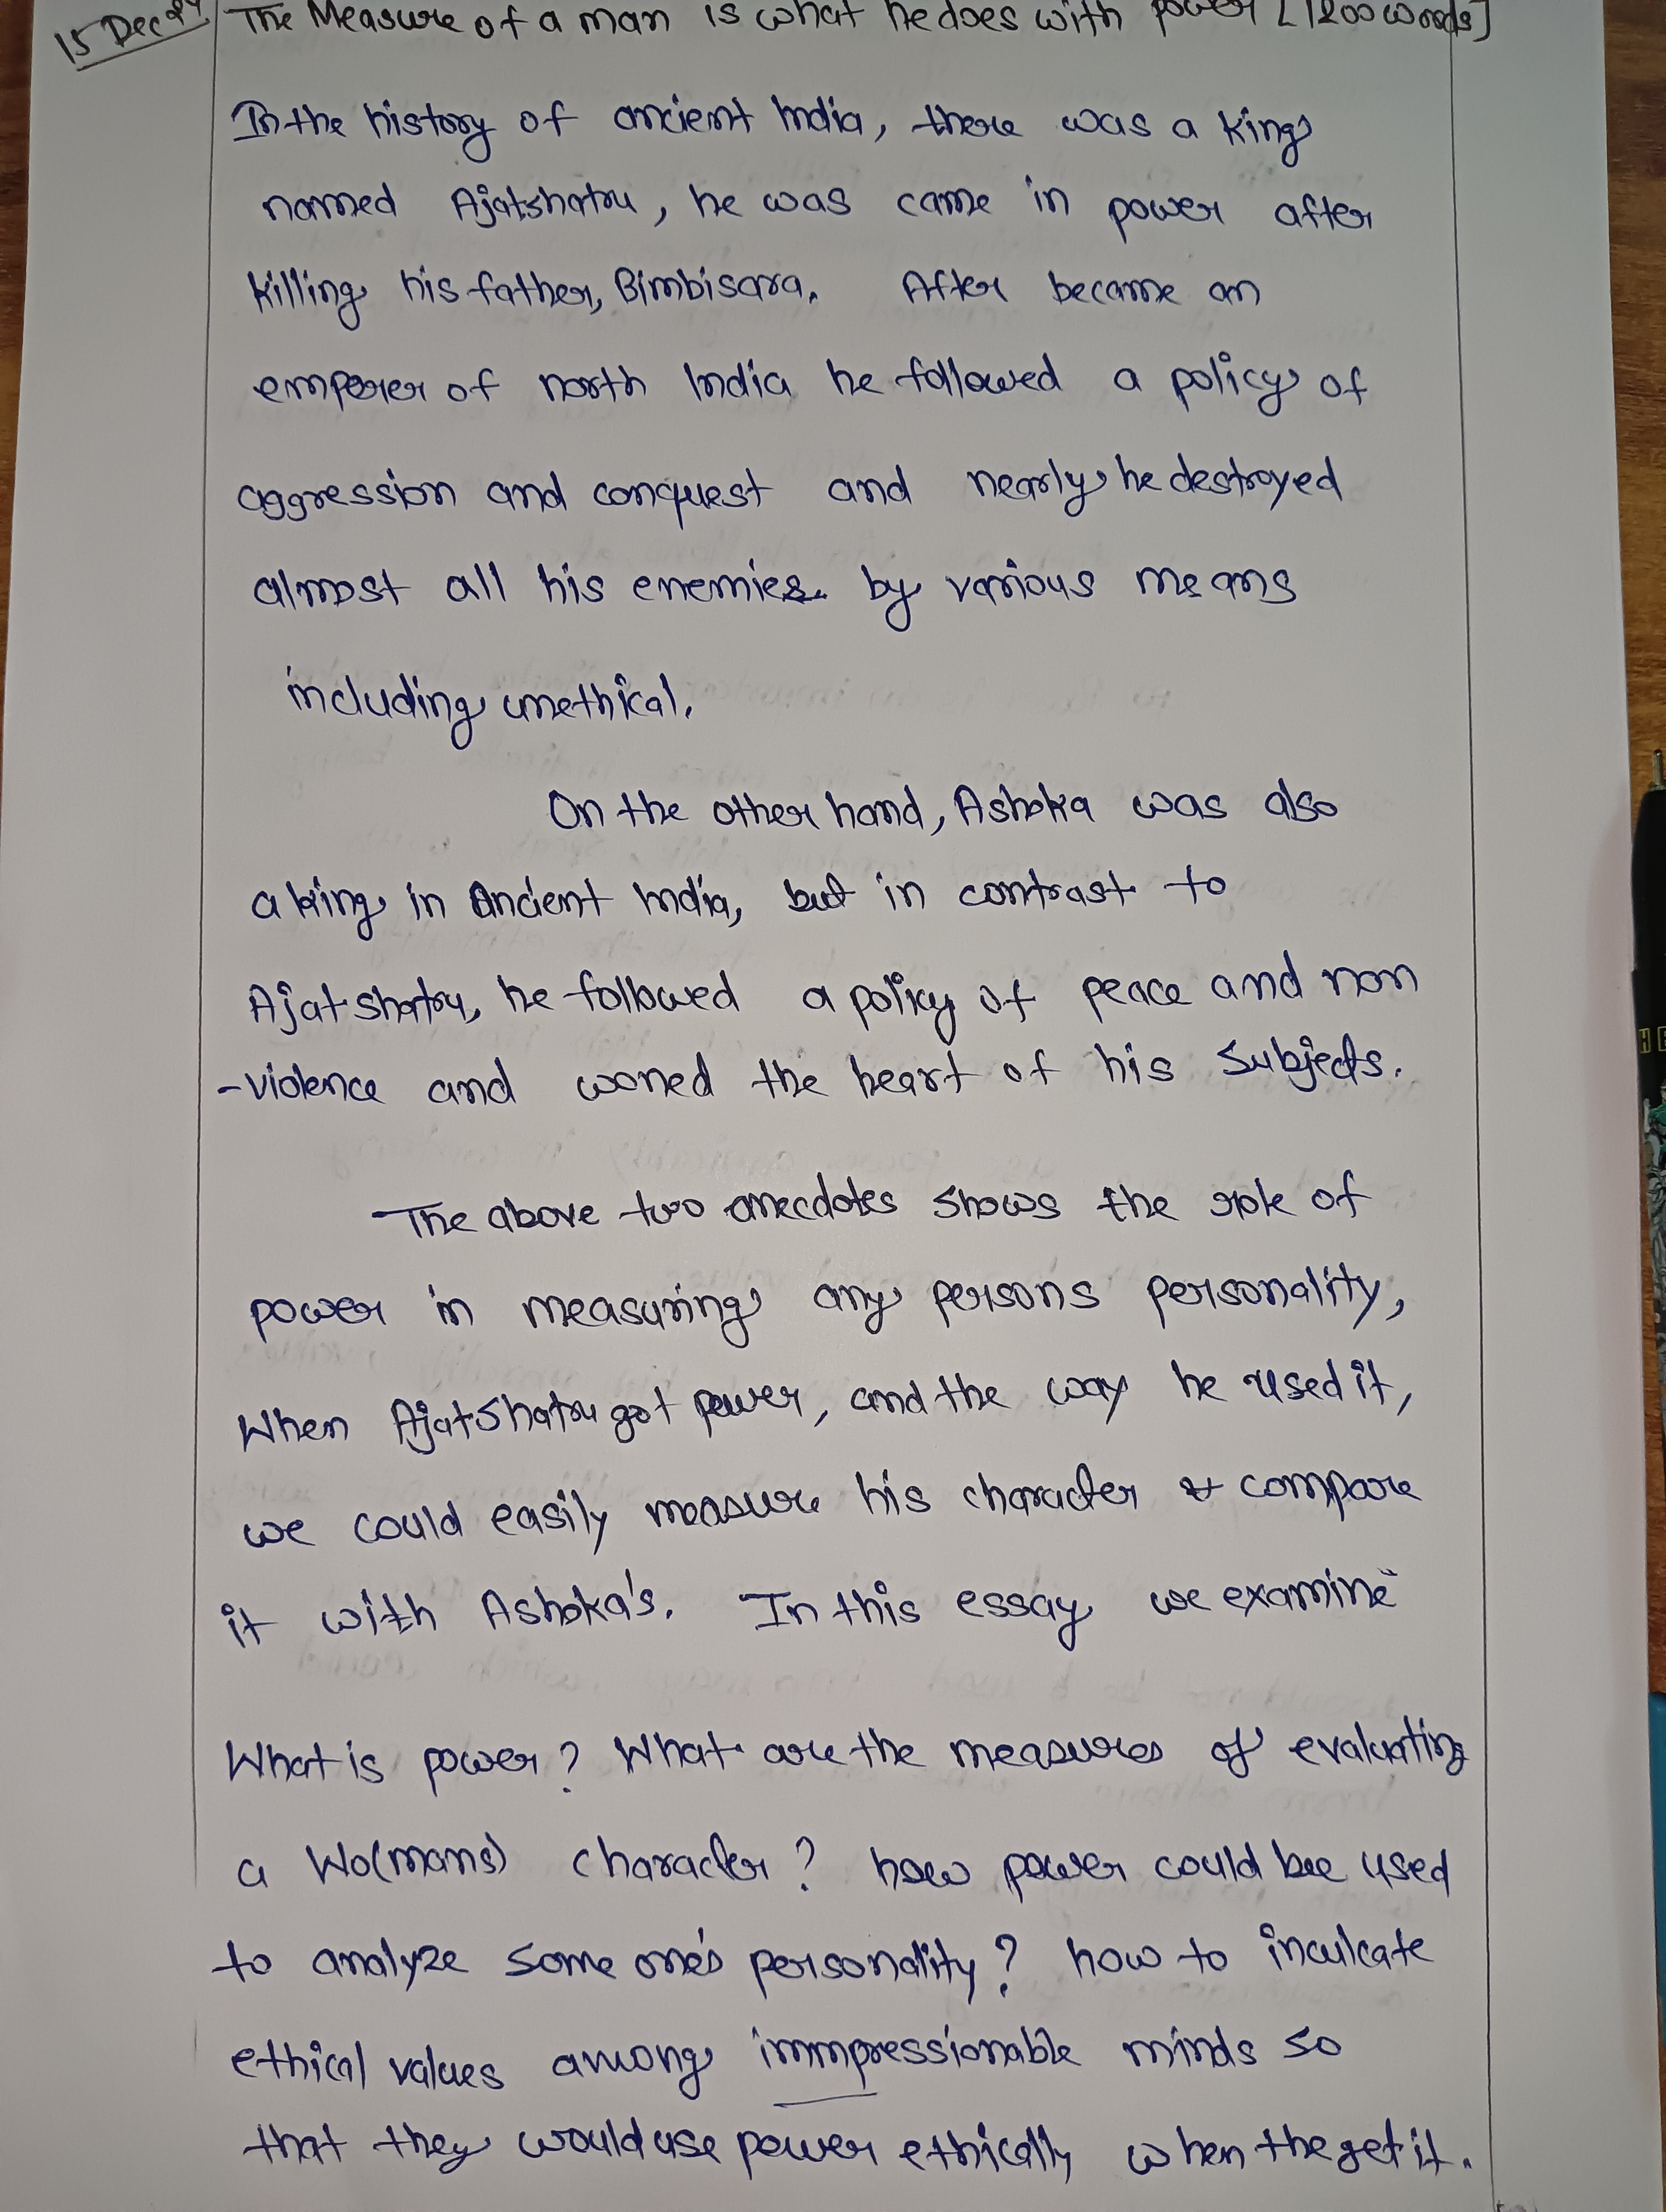 15 Dec 24
The Measure of a man is what he does with power [1200 words]
In the history of ancient India, there was a king
named Ajatshatru, he was came in power after
killing his father, Bimbisara. After became an
emperer of north India he followed a policy of
aggression and conquest and nearly he destroyed
almost all his enemies by various means
including unethical.
On the other hand, Ashoka was also
a king in Ancient India, but in contrast to
Ajatshatru, he followed a policy of peace and non
-violence and woned the heart of his subjects.
The above two anecdotes shows the role of
power in measuring any persons personality,
When Ajatshatru got power, and the way he used it,
we could easily measure his character & compare
it with Ashoka's. In this essay we examine
What is power? What are the measures of evaluating
a Wo(mans) character? how power could be used
to analyze some one's personality? how to inculcate
ethical values among immpressionable minds so
that they would use power ethically when the get it.